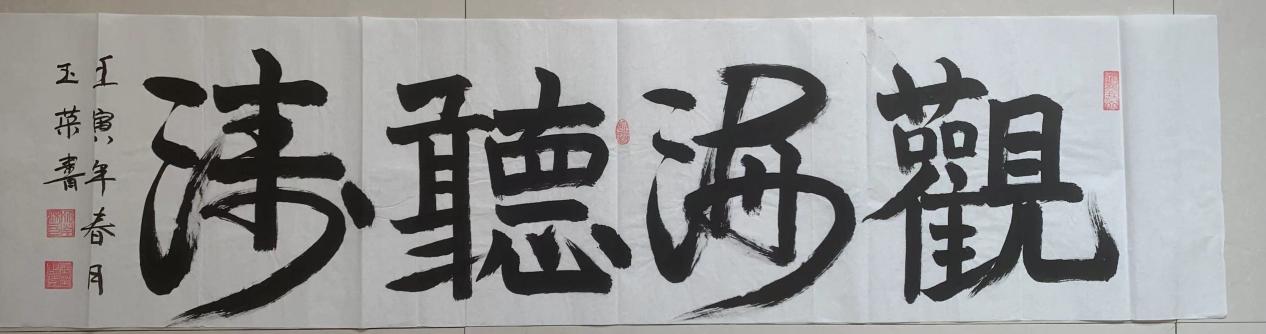 觀海聽涛
壬寅年春月
玉英書